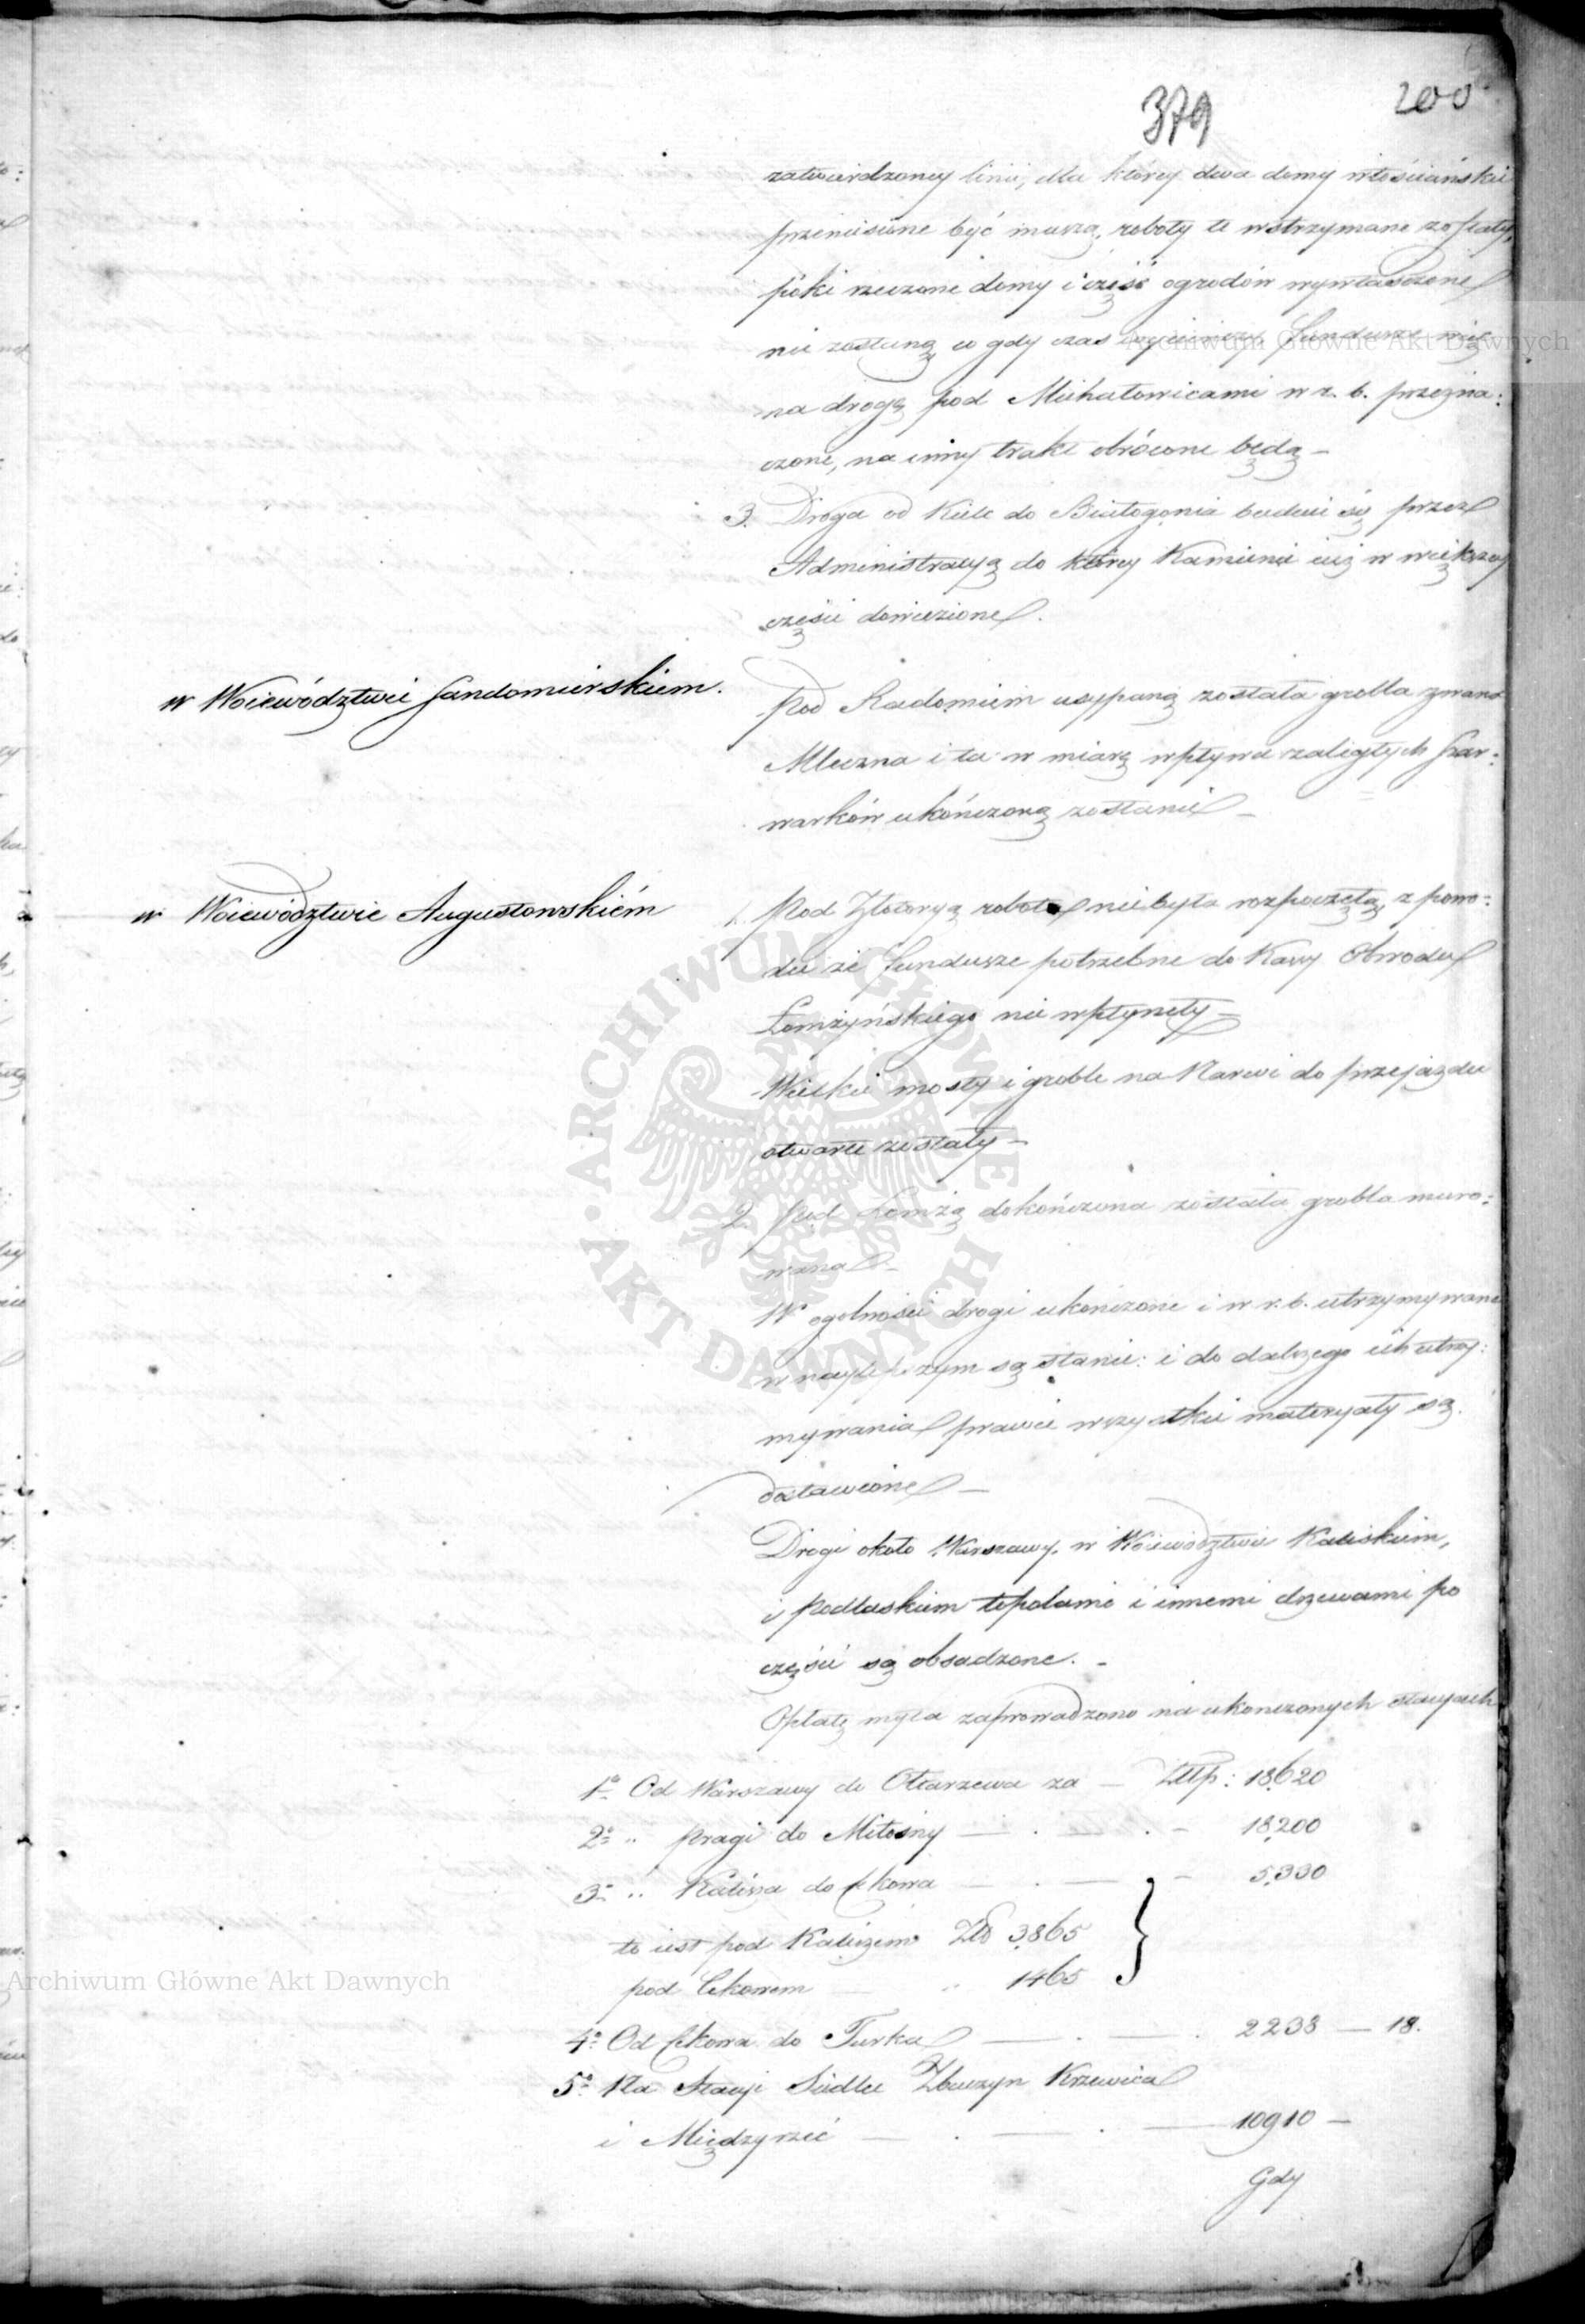 379
200
zatwierdzoney linii, dla którey dwa domy włościańskie
przeniesione być muszą, roboty te wstrzymane zostały,
póki rzeczone domy i część ogrodów wywłaszczone
nie zostaną, a gdy czas Fundusze niey
na drogę pod Michałowicami w r. b. przezna:
czone, na inny trakt obrócone będą –
3. Droga od Kielc do Białogonia buduie się przez
Administracyą do którey Kamienie iuż w większey
części dowiezione.
w Woiewództwie Sandomierskiem.
Pod Radomiem usypaną została grobla zwana
Mleczna i ta w miarę wpływu zaległych Szar:
warków ukończoną zostanie –
w Woiewództwie Augustowskiém
1. Pod Złotoryą robota nie była rozpoczętą, z powo:
du że Fundusze potrzebne do Kassy Obwodu
Łomżyńskiego nie wpłynęły –
Wielkie mosty i groble na Narwi do przejazdu
otwarte zostały –
2. Pod Łomżą dokończona została grobla muro:
wana –
W ogolności drogi ukończone i w r. b. utrzymywane
w naylepszym są stanie: i do dalszego ich utrzy:
mywania prawie wszystkie materyały są
dostawione –
Drogi około Warszawy, w Woiewództwie Kaliskiem,
i Podlaskiem topolami i innemi drzewami po
części są obsadzone. –
Opłatę myta zaprowadzono na ukończonych stacyach
1o Od Warszawy do Ołtarzewa za – Złłp: 18,620
2o „ Pragi do Miłosny – . – . – 18,200
3o „ Kalisza do Cekowa – . – – 5,330
to iest pod Kaliszem Złł 3,865 }
pod Cekowem – „ 1465
4o Od Cekowa do Turku – . – . 2238 – 18.
5o Na Stacyi Siedlce Zbuczyn Krzewica
i Międzyrzéc – . – . – 10910 –
Gdy
Archiwum Główne Akt Dawnych
Archiwum Główne Akt Dawnych
ARCHIWUM GŁÓWNE AKT DAWNYCH